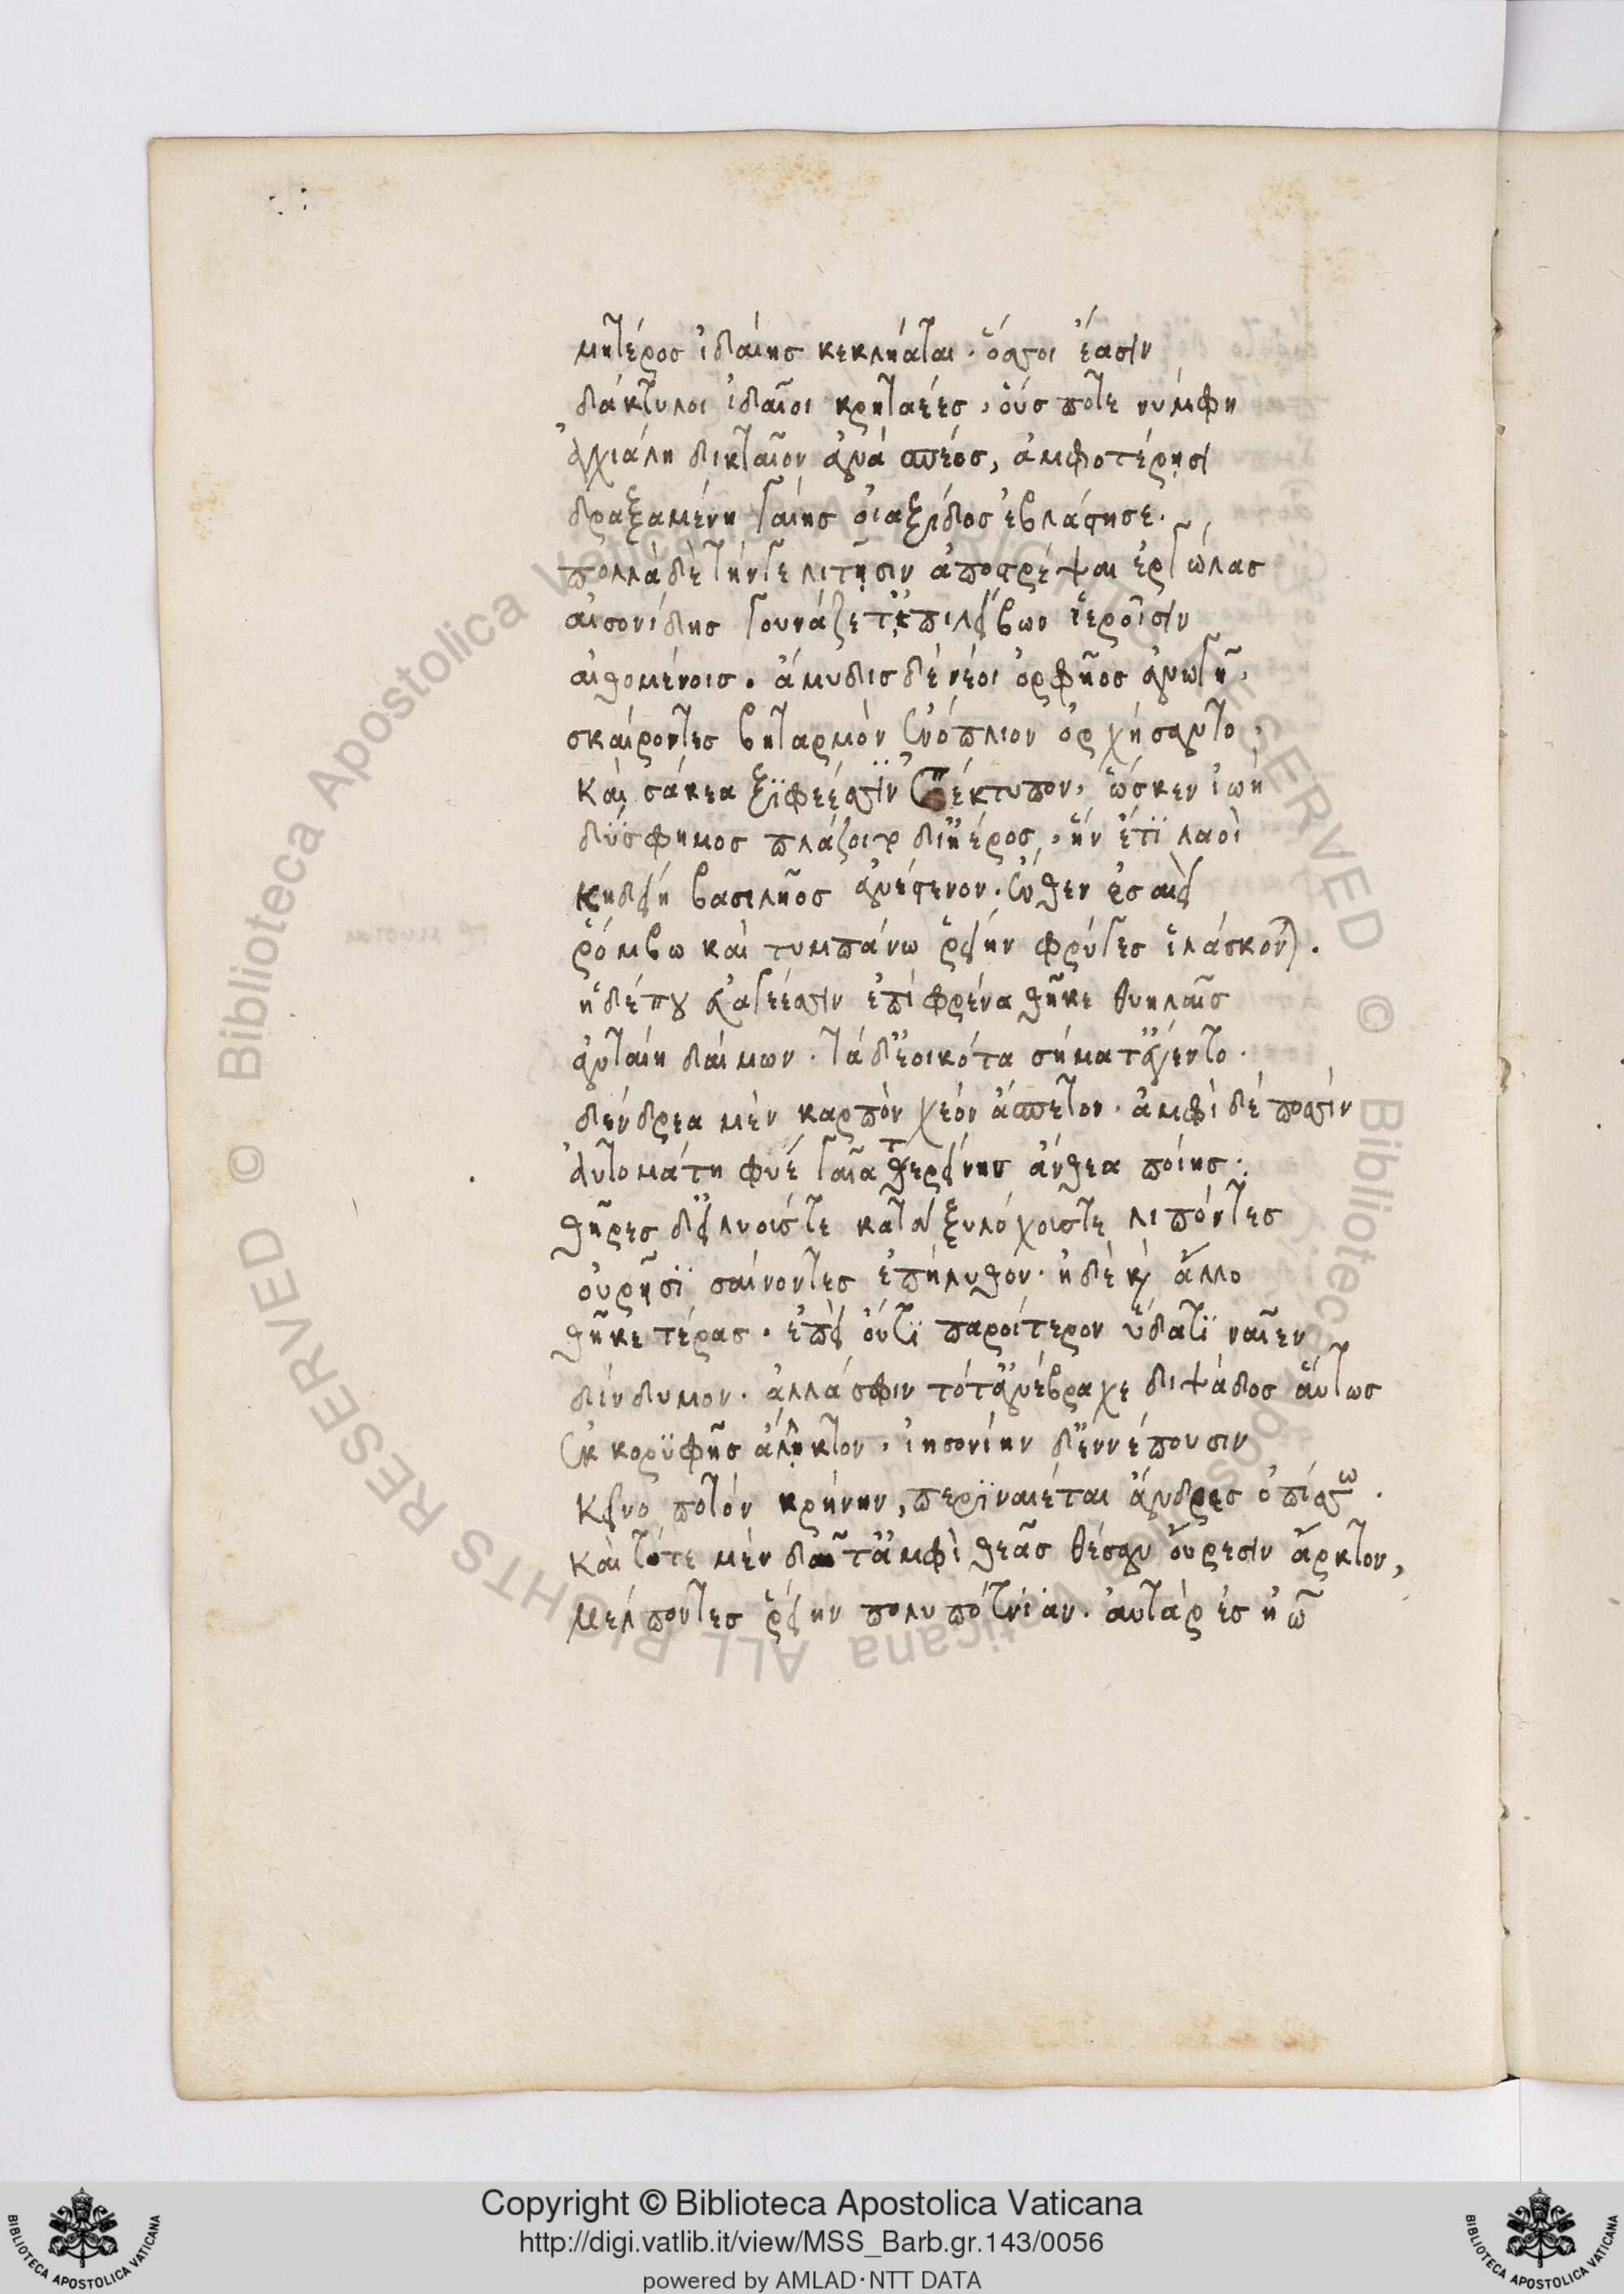 μητέρος ἰδαίης κεκλήαται. ὅσσοι ἔασιν
δάκτυλοι ἰδαῖοι κρηταέες, οὕς ποτε νύμφη
ἀγχιάλη δικταῖον ἀνὰ σπέος, ἀμφοτέρῃσι
δραξαμένη γαίης οἰαξίδος ἐβλάστησε.
πολλὰ δὲ τήνγε λιτῇσιν ἀποστρέψαι ἐργώλας
αἰσονίδης γουνάζετ' ἐπιλείβων ἱεροῖσιν
αἰθομένοις. ἄμυδις δὲ νέοι ὀρφῆος ἀνωγῇ,
σκαίροντες βηταρμὸν ἐνόπλιον ὀρχήσαντο,
καὶ σάκεα ξϊφέεσσϊν ἐπέκτυπον, ὥς κεν ἰωὴ
δύσφημος πλάζοιτο δι' ἠέρος, ἣν ἔτϊ λαοὶ
κηδείη βασιλῆος ἀνέστενον. ἔνθεν ἐσαιεὶ
ῥόμβω καὶ τυμπάνω ῥείην φρύγες ἱλάσκονται.
ἡ δέ που εὐαγέεσσιν ἐπὶ φρένα θῆκε θυηλαῖς
ἀνταίη δαίμων. τὰ δ' ἐοικότα σήματ' ἐγένοντο.
δένδρεα μὲν καρπὸν χέον ἄσπετον. ἀμφὶ δὲ ποσσὶν
αὐτομάτη φυέ γαῖα τερείνης ἄνθεα ποίης.
θῆρες δ' εἰλυούς τε κατὰ ξυλόχους τε λιπόντες
οὐρῇσϊ σαίνοντες ἐπήλυθον. ἡ δὲ καὶ ἄλλο
θῆκε τέρας. ἐπεὶ οὔτϊ παροίτερον ὕδατϊ ναῖεν
δίνδυμον. ἀλλά σφιν τότ' ἀνέβραχε διψάδος αὔτως
ἐκ κορϋφῆς ἄληκτον. ἰησονίην δ' ἐννέπουσιν
κεῖνο ποτὸν κρήνην, περϊναιέται ἄνδρες ὀπίσσω.
καὶ τότε μὲν δαῖτ' ἀμφὶ θεᾶς θέσαν οὔρεσιν ἄρκτον,
μέλποντες ῥείην πολυπότνϊαν. αὐτὰρ ἐς ἠῶ
Copyright © Biblioteca Apostolica Vaticana
http://digi.vatlib.it/view/MSS_Barb.gr.143/0056
powered by AMLAD·NTT DATA